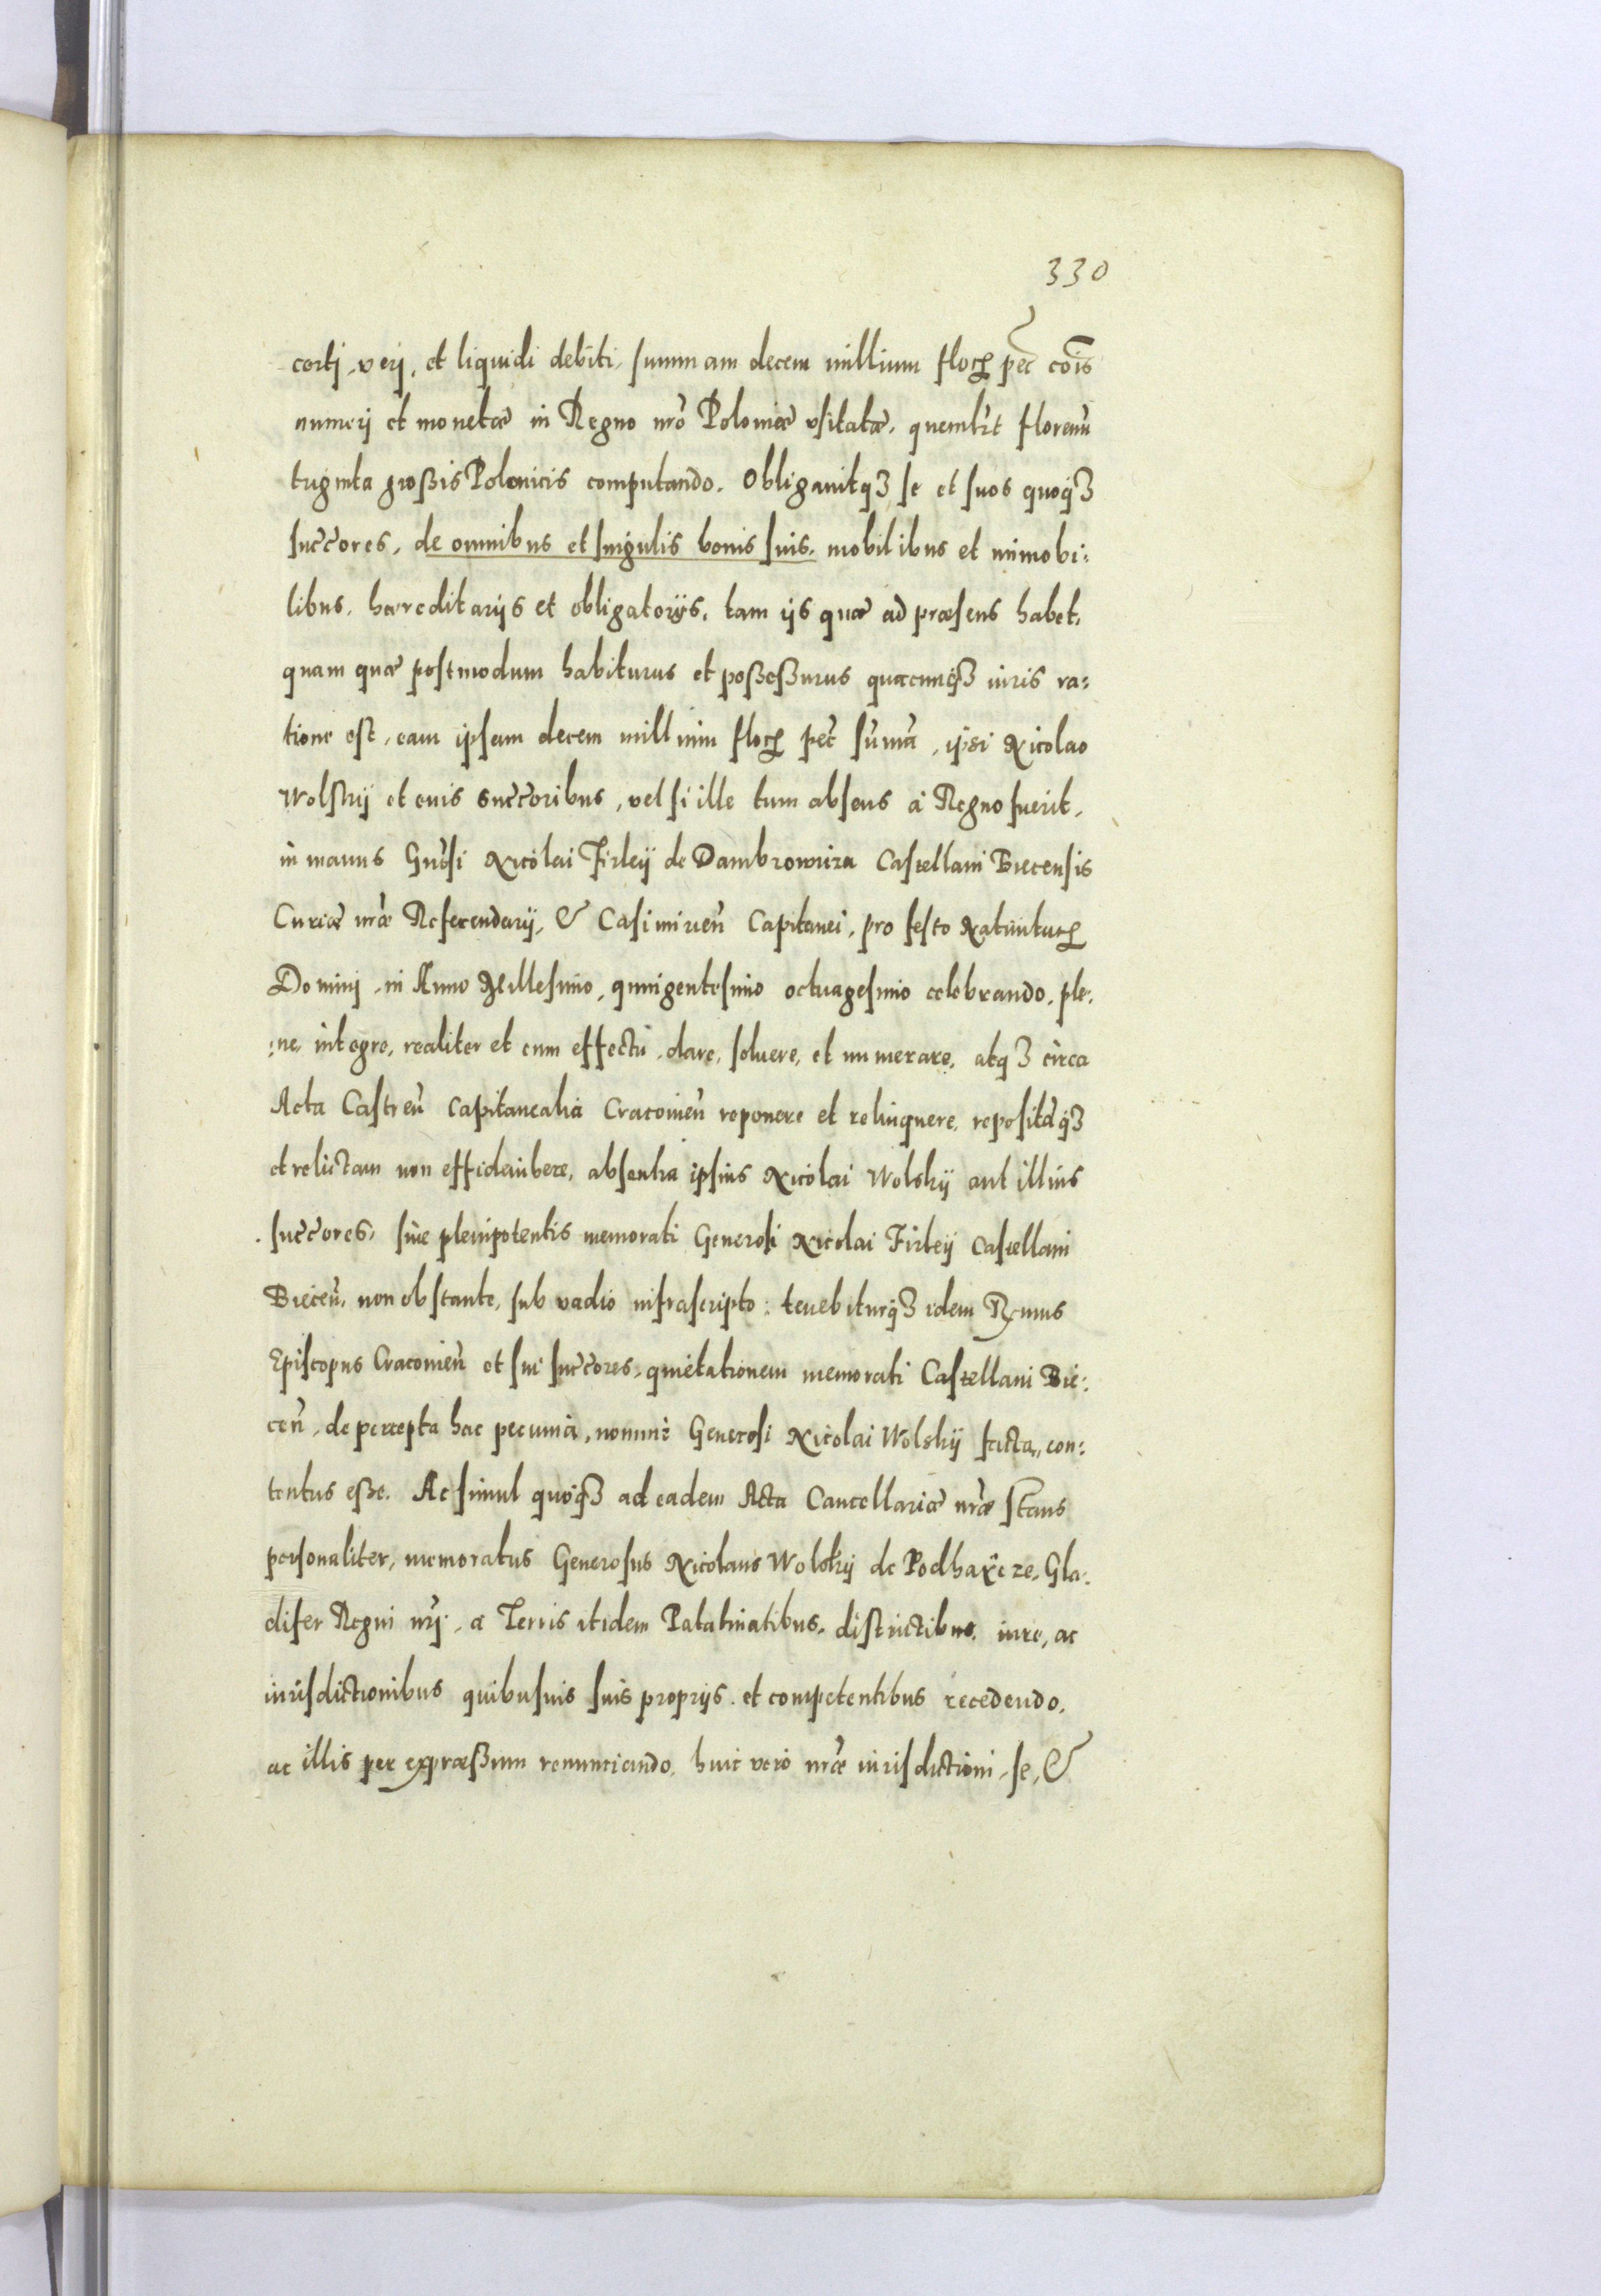 330
certj, verj, et liquidi debiti, summam decem millium floꝝ pec̃ cõis
numerj et monetæ in Regno nr̃o Poloniæ vsitatæ, quemlib̃t florenũ
triginta großis Polonicis computando. Obligauitqꝫ se et suos quoqꝫ
succ̃ores, de omnibus et singulis bonis suis, mobilibus et immobi:
libus, hæreditarijs et obligatorijs, tam ijs quæ ad præsens habet,
quam quæ postmodum habiturus et poßeßurus quacunqꝫ iuris ra:
tione est, eam ipsam decem millium floꝝ pec̃ sum̃ã, ipsi Nicolao
Wolskij et euis succ̃oribus, vel si ille tum absens à Regno fuerit,
in manus Gñosi Nicolai Firleij de Dambrowicza Castellani Biecensis
Curiæ nr̃æ Referendarij, & Casimirieñ Capitanei, pro festo Natiuitatꝝ
Dominj, in Anno Millesimo, quingentesimo octuagesimo celebrando, ple:
:ne, integre, realiter et cum effectu, dare, soluere, et numerare, atqꝫ circa
Acta Castreñ Capitanealia Cracouieñ reponere et relinquere, repositãqꝫ
et relictam non effidembere, absentia ipsius Nicolai Wolskij aut illius
succ̃ores, siue plenipotentis memorati Generosi Nicolai Firleij Castellani
Bieceñ, non obstante, sub vadio infrascripto: tenebiturqꝫ idem Rẽmus
Episcopus Cracouieñ et sui succ̃ores, quietationem memorati Castellani Bie:
ceñ, de percepta hac pecunia, nomine Generosi Nicolai Wolskij facta, con:
tentus eße. Ac simul quoqꝫ ad eadem Acta Cancellariæ nr̃æ stans
personaliter, memoratus Generosus Nicolaus Wolskij de Podhaÿcze, Gla:
difer Regni nr̃j, a Terris itidem Palatinatibus, districtibus, iure, ac
iurisdictionibus quibusuis suis proprijs et competentibus recedendo,
ac illis per expræßum renunciando, huic vero nr̃æ iurisdictioni, se, &